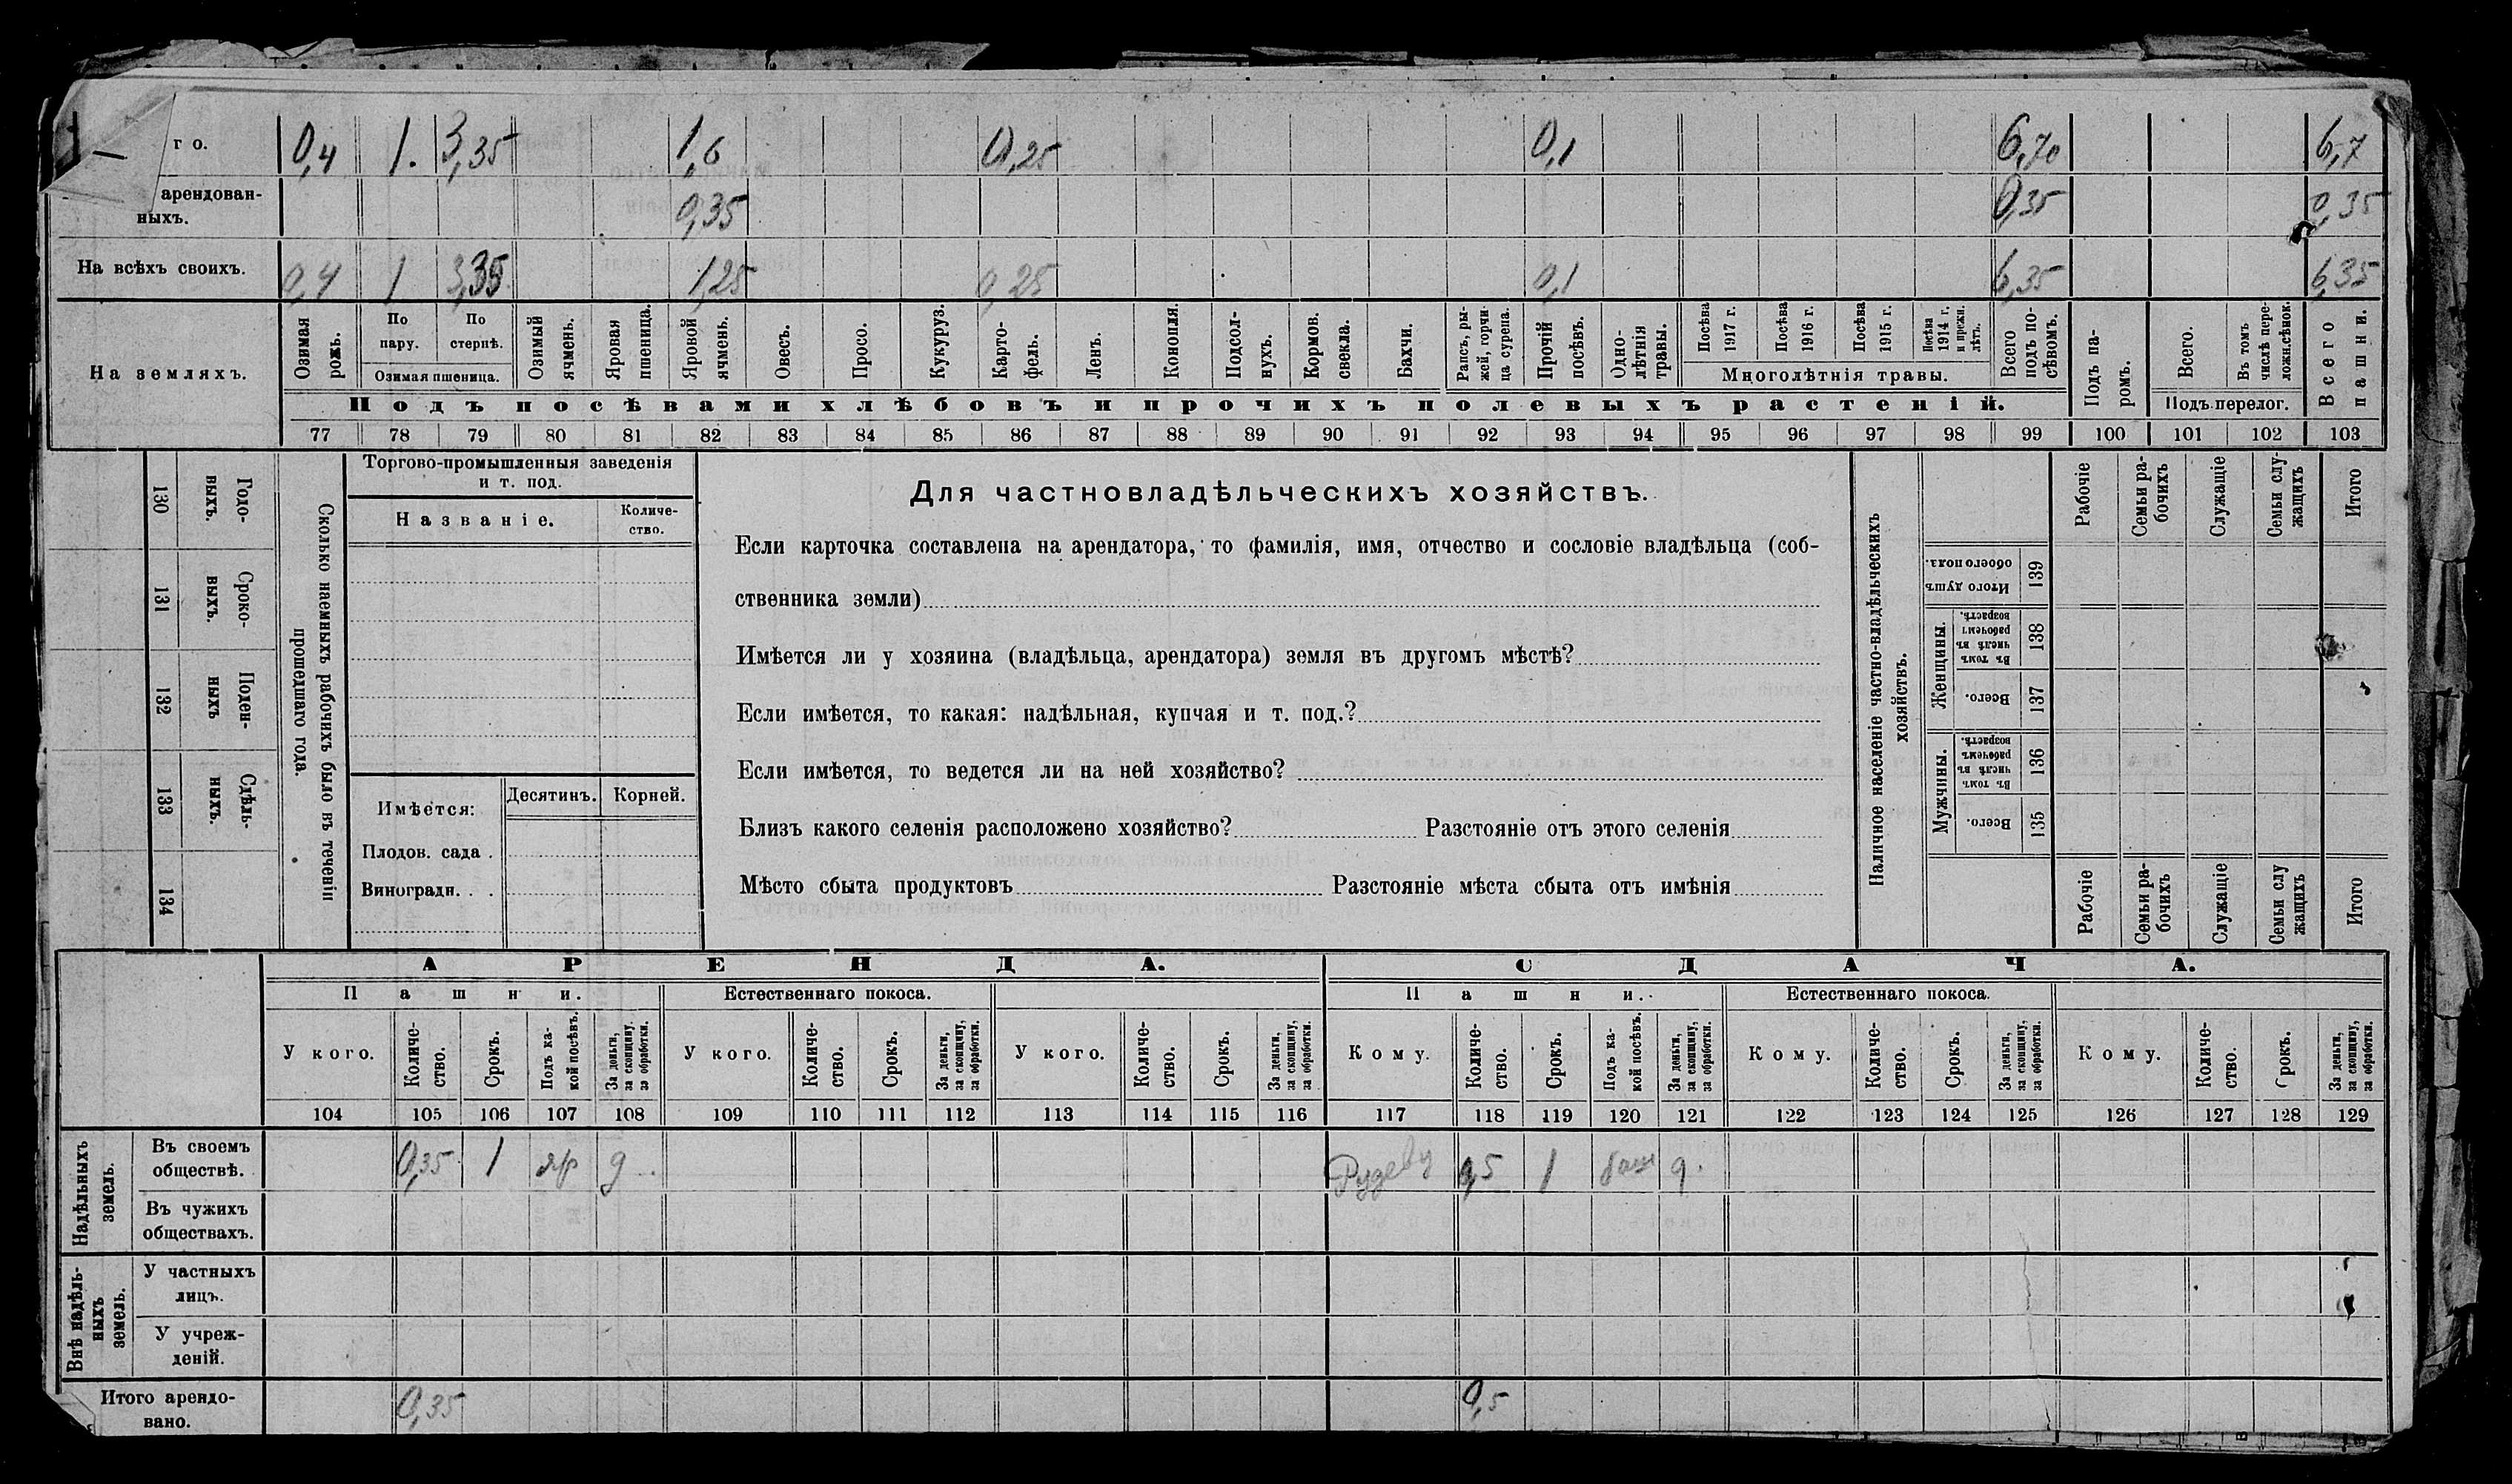 го. 0,4 1. 3,35 1,6 0,25 0,1 6,70 6,7
арендован-
ныхъ. 0,35 0,35 0,35
На всѣхъ своихъ. 0,4 1 3,35 1,25 0,25 0,1 6,35 6,35
На земляхъ.
Озимая рожь.
По пару.
По стернѣ.
Озимая пшеница.
Озимый ячмень.
Яровая пшеница.
Яровой ячмень.
Овесъ.
Просо.
Кукуруз.
Карто-
фель.
Ленъ.
Конопля.
Подсол-
нухъ.
Кормов. свекла.
Бахчи.
Рапсъ, ры-
жей, горчи-
ца сурепа.
Прочій посѣвъ.
Одно-
лѣтнія травы.
Посѣва 1917 г.
Посѣва 1916 г.
Посѣва 1915 г.
Посѣва 1914 г. и прежн. лѣтъ.
Многолѣтнія травы.
Всего подъ по-
сѣвомъ.
Подъ па-
ромъ.
Всего.
Въ томъ числѣ пере-
ложн.сѣнок.
Подъ перелог.
Всего пашни.
Подъ посѣвами хлѣбовъ и прочихъ полевыхъ растеній.
77 78 79 80 81 82 83 84 85 86 87 88 89 90 91 92 93 94 95 96 97 98 99 100 101 102 103
130 Годо-
выхъ.
131 Сроко-
выхъ.
132 Поден-
ныхъ
133 Сдѣль-
ныхъ.
134
Сколько наемныхъ рабочихъ было въ теченіи
прошедшаго года.
Торгово-промышленныя заведенія
и т. под.
Названіе.
Количе-
ство.
Имѣется: Десятинъ. Корней.
Плодов. сада .
Виноградн. . .
Для частновладѣльческихъ хозяйствъ.
Если карточка составлена на арендатора, то фамилія, имя, отчество и сословіе владѣльца (соб-
ственника земли)
Имѣется ли у хозяина (владѣльца, арендатора) земля въ другомъ мѣстѣ?
Если имѣется, то какая: надѣльная, купчая и т. под.?
Если имѣется, то ведется ли на ней хозяйство?
Близъ какого селенія расположено хозяйство? Разстояніе отъ этого селенія
Мѣсто сбыта продуктовъ Разстояніе мѣста сбыта отъ имѣнія
Наличное населеніе частно-владѣльческихъ
хозяйствъ.
Рабочіе
Семьи ра-
бочихъ
Служащіе
Семьи слу-
жащихъ
Итого
Итого душъ обоего пола. 139
Женщины.
Въ томъ числѣ въ рабочемъ возрастѣ. 138
Всего. 137
Мужчины.
Въ томъ числѣ въ рабочемъ возрастѣ. 136
Всего. 135
Рабочіе
Семьи ра-
бочихъ
Служащіе
Семьи слу
жащихъ
Итого
АРЕНДА. СДАЧА.
Пашни. Естественнаго покоса. Пашни. Естественнаго покоса.
У кого.
Количе-
ство.
Срокъ.
Подъ ка-
кой посѣвъ.
За деньги, за скопщину, за обработки.
У кого.
Количе-
ство.
Срокъ.
За деньги, за скопщину, за обработки.
У кого.
Количе-
ство.
Срокъ.
За деньги, за скопщину, за обработки.
Кому.
Количе-
ство.
Срокъ.
Подъ ка-
кой посѣвъ.
За деньги, за скопщину, за обработки.
Кому.
Количе-
ство.
Срокъ.
За деньги, за скопщину, за обработки.
Кому.
Количе-
ство.
Срокъ.
За деньги, за скопщину, за обработки.
104 105 106 107 108 109 110 111 112 113 114 115 116 117 118 119 120 121 122 123 124 125 126 127 128 129
Надѣльныхъ
земель.
Въ своемъ
обществѣ. 0,35 1 яр д. 0,5 1 д.
Въ чужихъ
обществахъ.
Внѣ надѣль-
ныхъ
земель.
У частныхъ
лицъ.
У учреж-
деній.
Итого арендо-
вано. 0,35 0,5